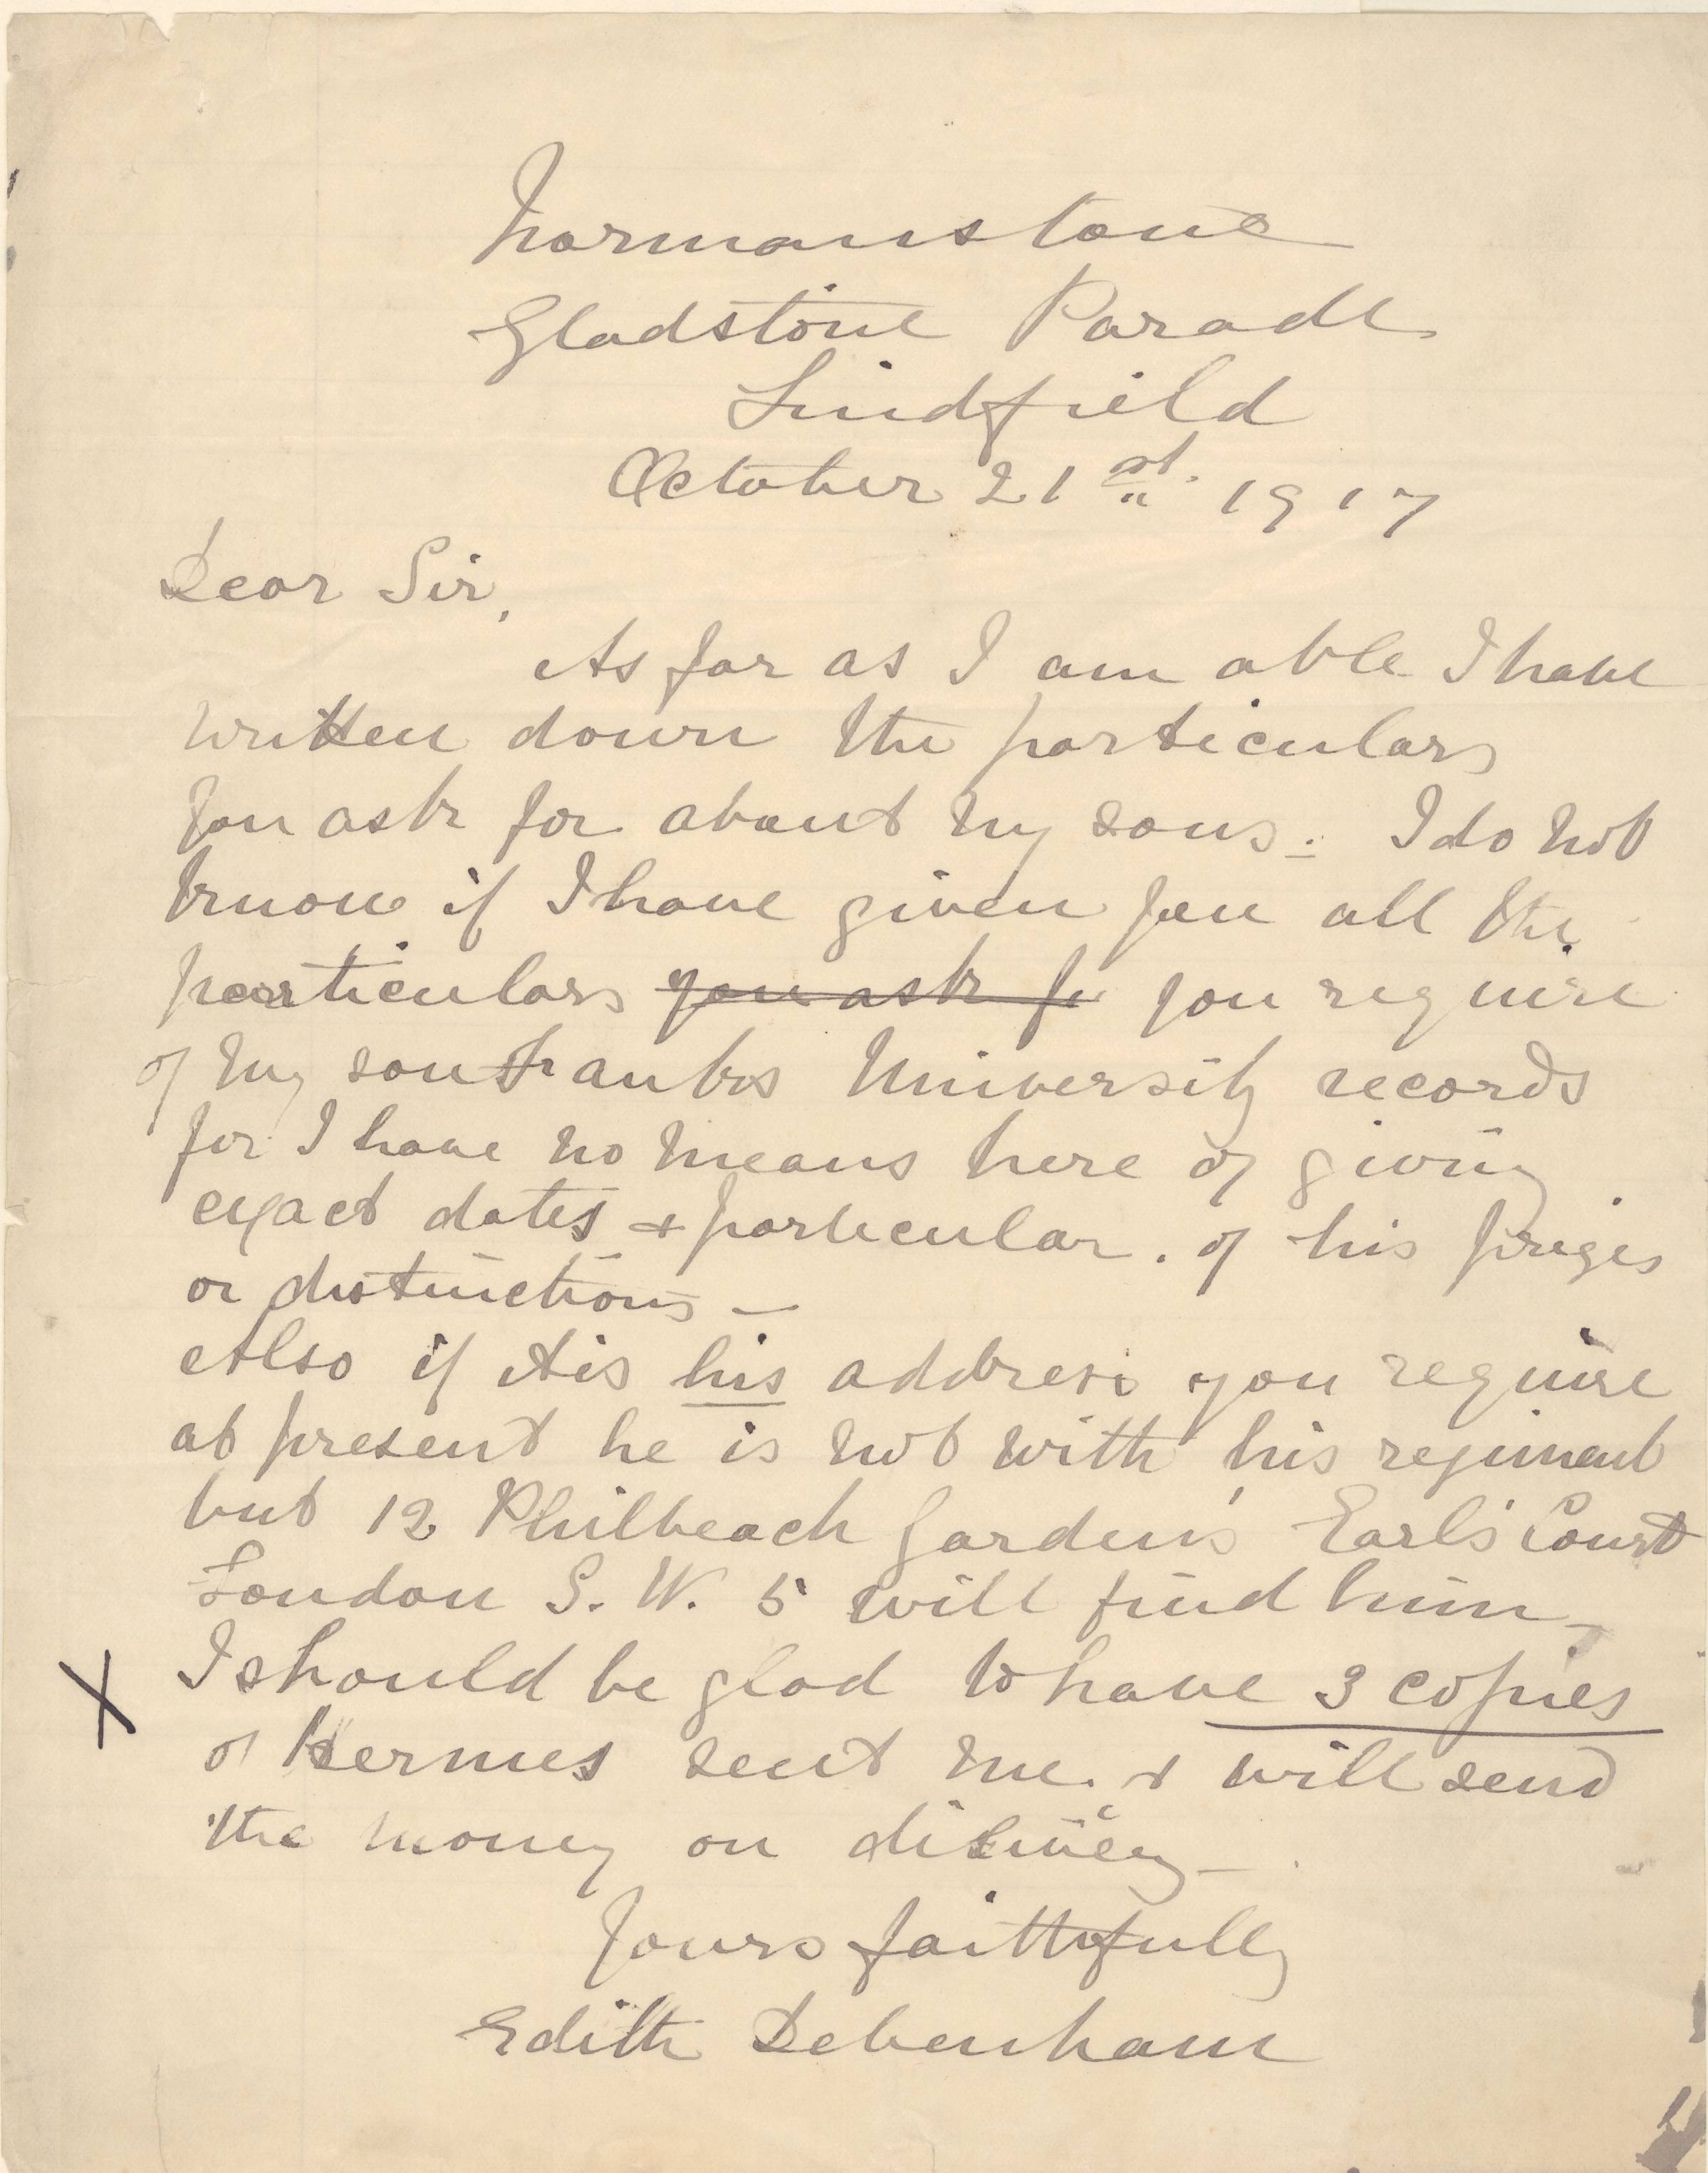 Normanstone
Gladstone Parade
Lindfield
October 21st. 1917
Dear Sir,
As far as I am able I have
written down the particulars
you ask for about my sons. I do not
know if I have given you all the
particulars you ask for you require
of my son Franks University records
for I have no means here of giving
exact dates & particular. of his prizes
or distinctions —
Also if it is his address you require
at present he is not with his regiment
but 12 Philbeach Gardens Earl's Court
London S. W. 5 will find him —
X I should be glad to have 3 copies
of Hermes sent me. & will send
the money on delivery —
Yours faithfully
Edith Debenham